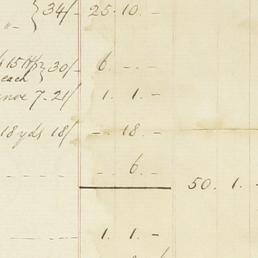 " } 34/- 25. 10. -
15 } 30/- 6. -. -
each
7. 21/ 1. 1. -
18 yds 18/ - 18. -
- - - - - 6. -
50. 1. -
- - - - 1. 1. -